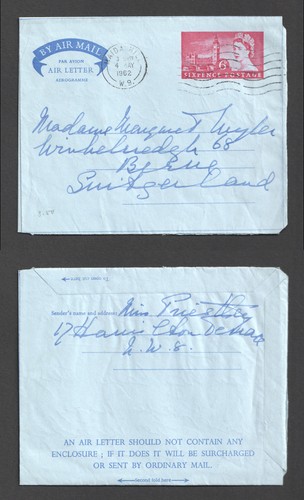 BY AIR MAIL
PAR AVION
AIR LETTER
AEROGRAMME
MAY
1962
W.9.
6D
SIXPENCE POSTAGE
Madame Margaret
68
Switzerland
To open cut here
Sender's name and address: Miss Priestley
17 Hamilton Terrace
N.W.8.
AN AIR LETTER SHOULD NOT CONTAIN ANY
ENCLOSURE ; IF IT DOES IT WILL BE SURCHARGED
OR SENT BY ORDINARY MAIL.
Second fold here